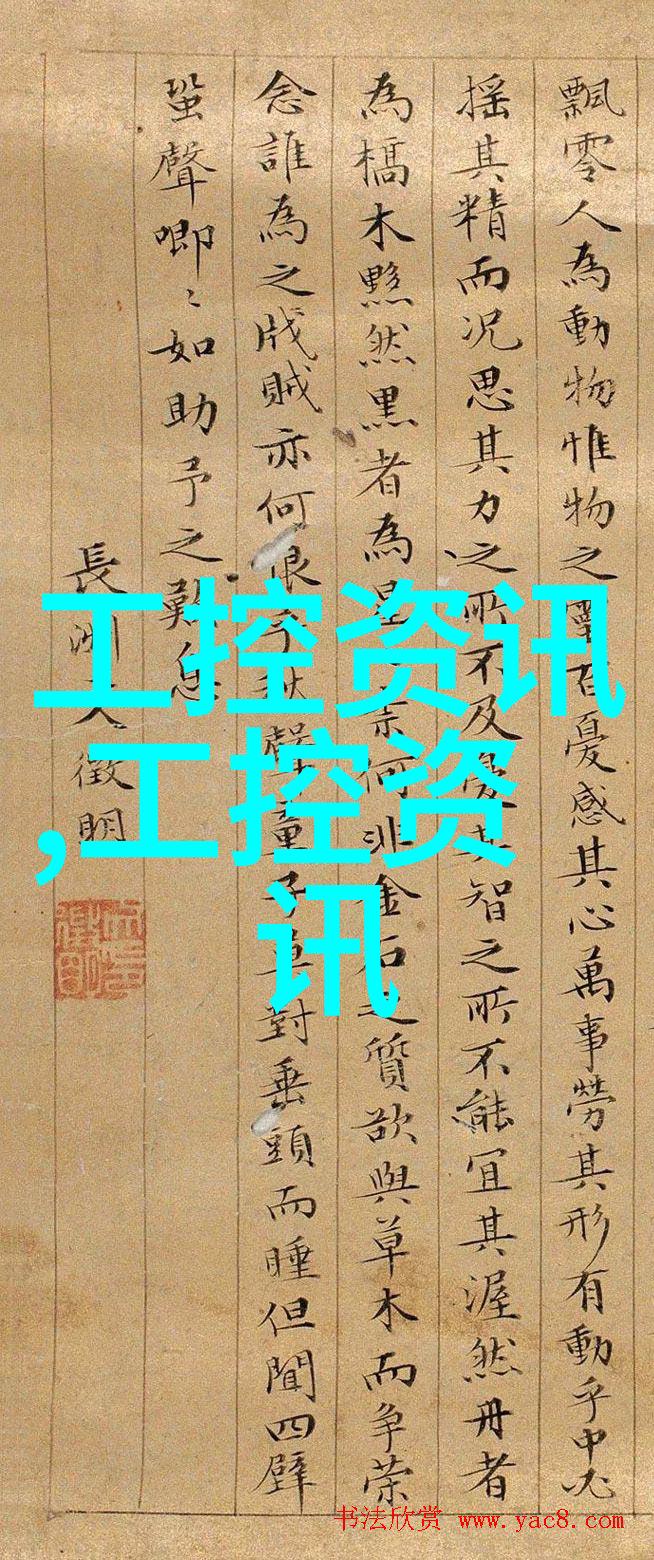 飄零人為動物惟物之靈百憂感其心萬事勞其形有動乎中必
搖其精而況思其力之所不及憂其智之所不能宜其渥然丹者
為槁木黟然黑者為星奈何非金石之質欲與草木而爭榮
念誰為之戕賊亦何恨乎秋聲童子莫對垂頭而睡但聞四壁
蛩聲唧〻如助予之歎息
長洲文徵明
工控资讯
,工控资
讯
书法欣赏 www.yac8.com